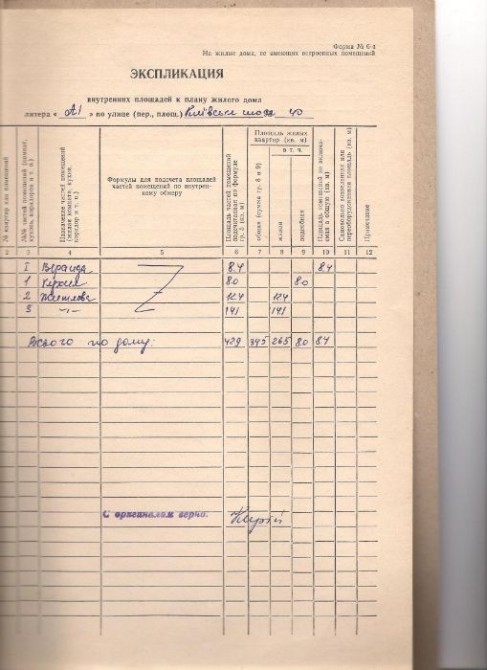 Форма № 6-а
На жилые дома, не имеющих встроенных помещений
ЭКСПЛИКАЦИЯ
внутренних площадей к плану жилого дома
литера « А1 » по улице (пер., площ.) Київське шосе 40
№ квартир или помещений
Назначение частей помещений
Формулы для подсчета площадей частей помещений по внутреннему обмеру
Площадь частей помещений
Площадь жилых квартир (кв. м)
в т. ч.
общая (сумма гр. 8 и 9)
жилая
подсобная
Самовольно возведенная или переоборудованная площадь (кв. м)
Примечание
2 3 4 5 6 7 8 9 10 11 12
I Веранда 8.4 8.4
1 Кухня 8.0 8.0
2 Житлова 12.4 12.4
3 -"- 14.1 14.1
Всього по дому: 42.9 34.5 26.5 8.0 8.4
С оригиналом верно.